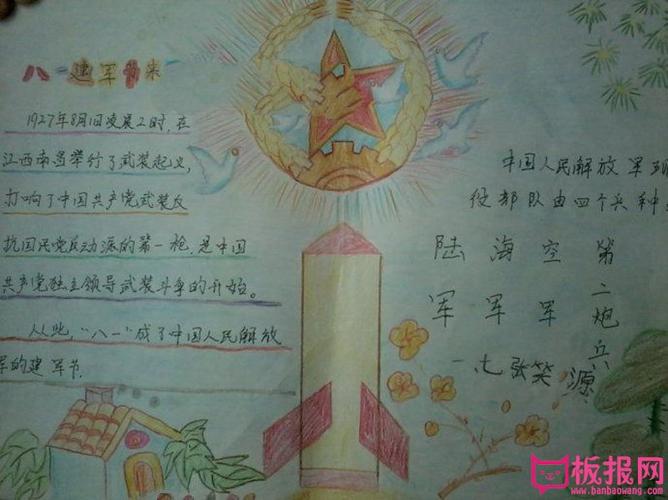 八一建军节来
1927年8月1日凌晨2时,在
江西南昌举行了武装起义,
打响了中国共产党武装反
抗国民党反动派的第一枪,是中国
共产党独立领导武装斗争的开始。
从此,"八一"成了中国人民解放
军的建军节.
中国人民解放军现
役部队由四个兵种
陆军
海军
空军
第二炮兵
一.七张笑源
板报网
www.banbaowang.com